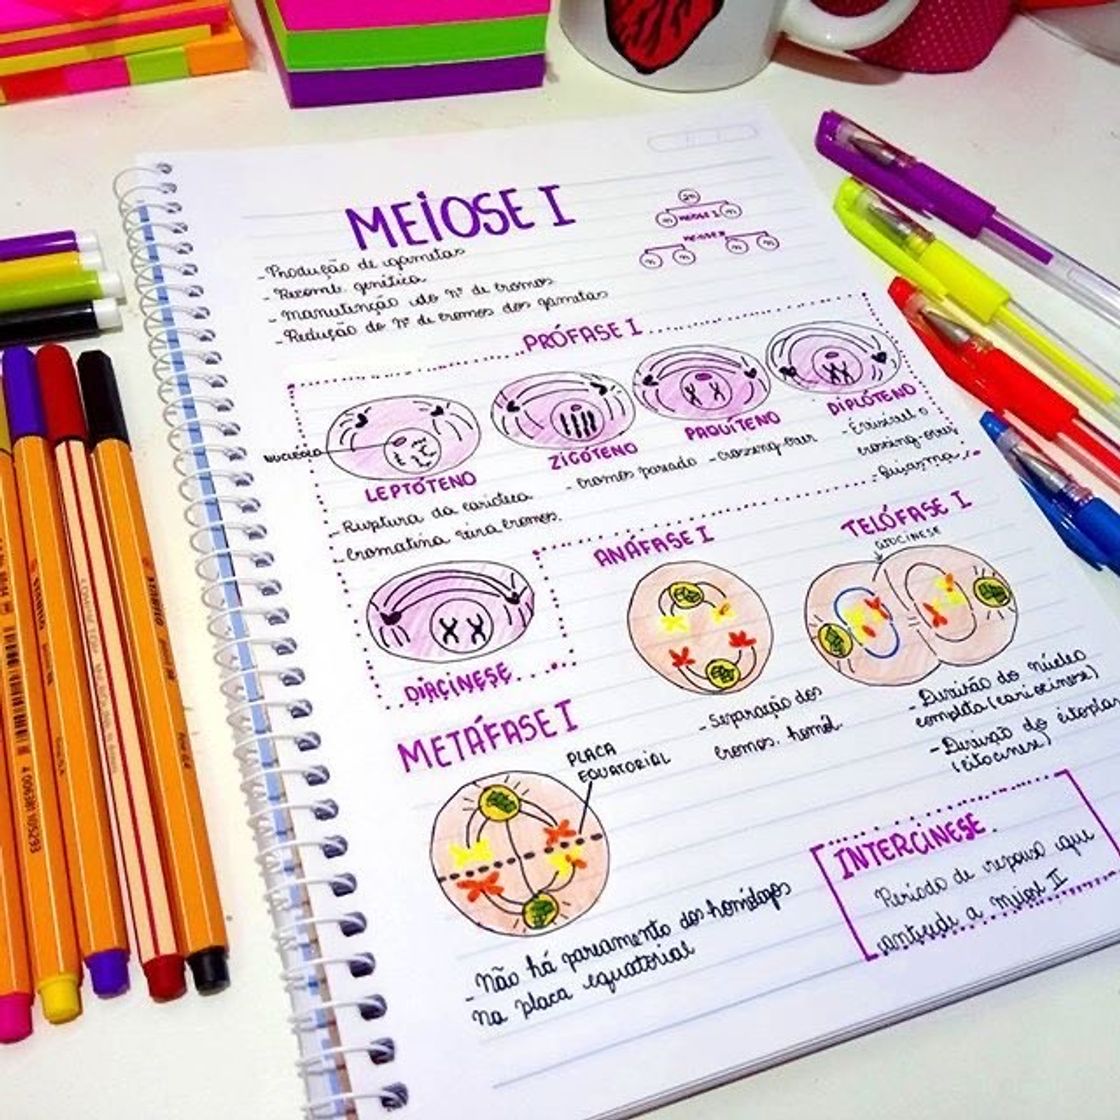 MEIOSE I
- Produção de gametas
- Recomb. genética
- Manutenção do nº de cromos
- Redução do nº de cromos dos gametas
2n
n MEIOSE I n
MEIOSE II
n n n n
PRÓFASE I
NUCLÉOLO
LEPTÓTENO
- Ruptura da carioteca
- cromatina vira cromos.
ZIGÓTENO
- cromos pareado
PAQUÍTENO
- crossing-over
DIPLÓTENO
crossing-over
- Quiasma
DIACINESE
ANÁFASE I
- Separação dos
cromos. homól.
TELÓFASE I
CITOCINESE
- Divisão do núcleo
completa (cariocinese)
- Divisão do citopla
(citocinese)
METÁFASE I
PLACA
EQUATORIAL
- Não há pareamento dos homólogos
na placa equatorial
INTERCINESE
Período de repouso que
antecede a meiose II